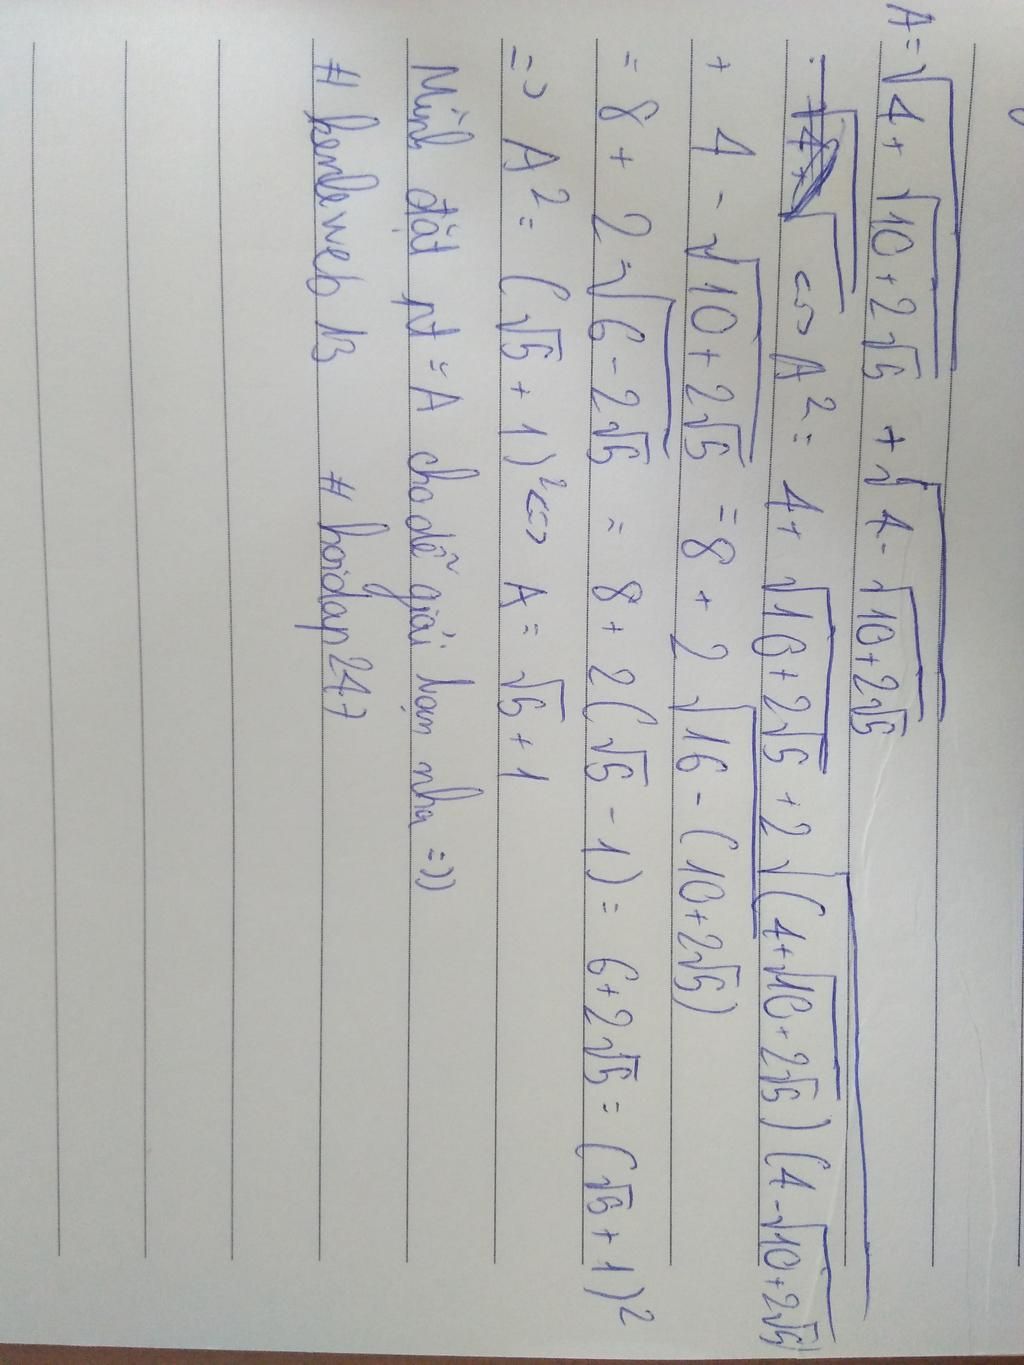 A = √(4 + √(10 + 2√5)) + √(4 - √(10 + 2√5))
<=> A² = 4 + √(10 + 2√5) + 2√((4 + √(10 + 2√5)) (4 - √(10 + 2√5)))
+ 4 - √(10 + 2√5) = 8 + 2√(16 - (10 + 2√5))
= 8 + 2√(6 - 2√5) = 8 + 2(√5 - 1) = 6 + 2√5 = (√5 + 1)²
=> A² = (√5 + 1)² <=> A = √5 + 1
Mình đặt pt = A cho dễ giải bạn nha =))
# kenleweb13 # hoidap247